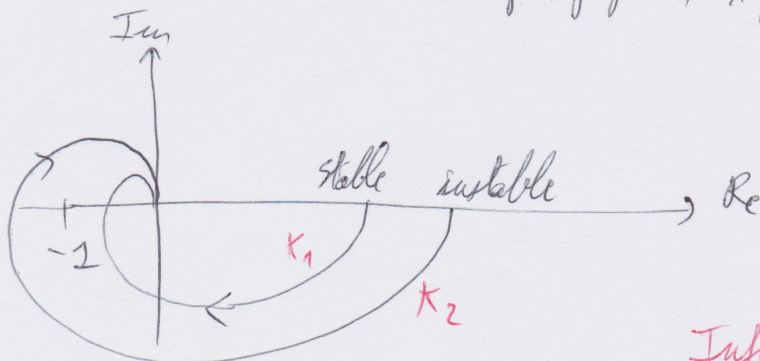 Im
stable instable Re
-1
K1
K2
Inf